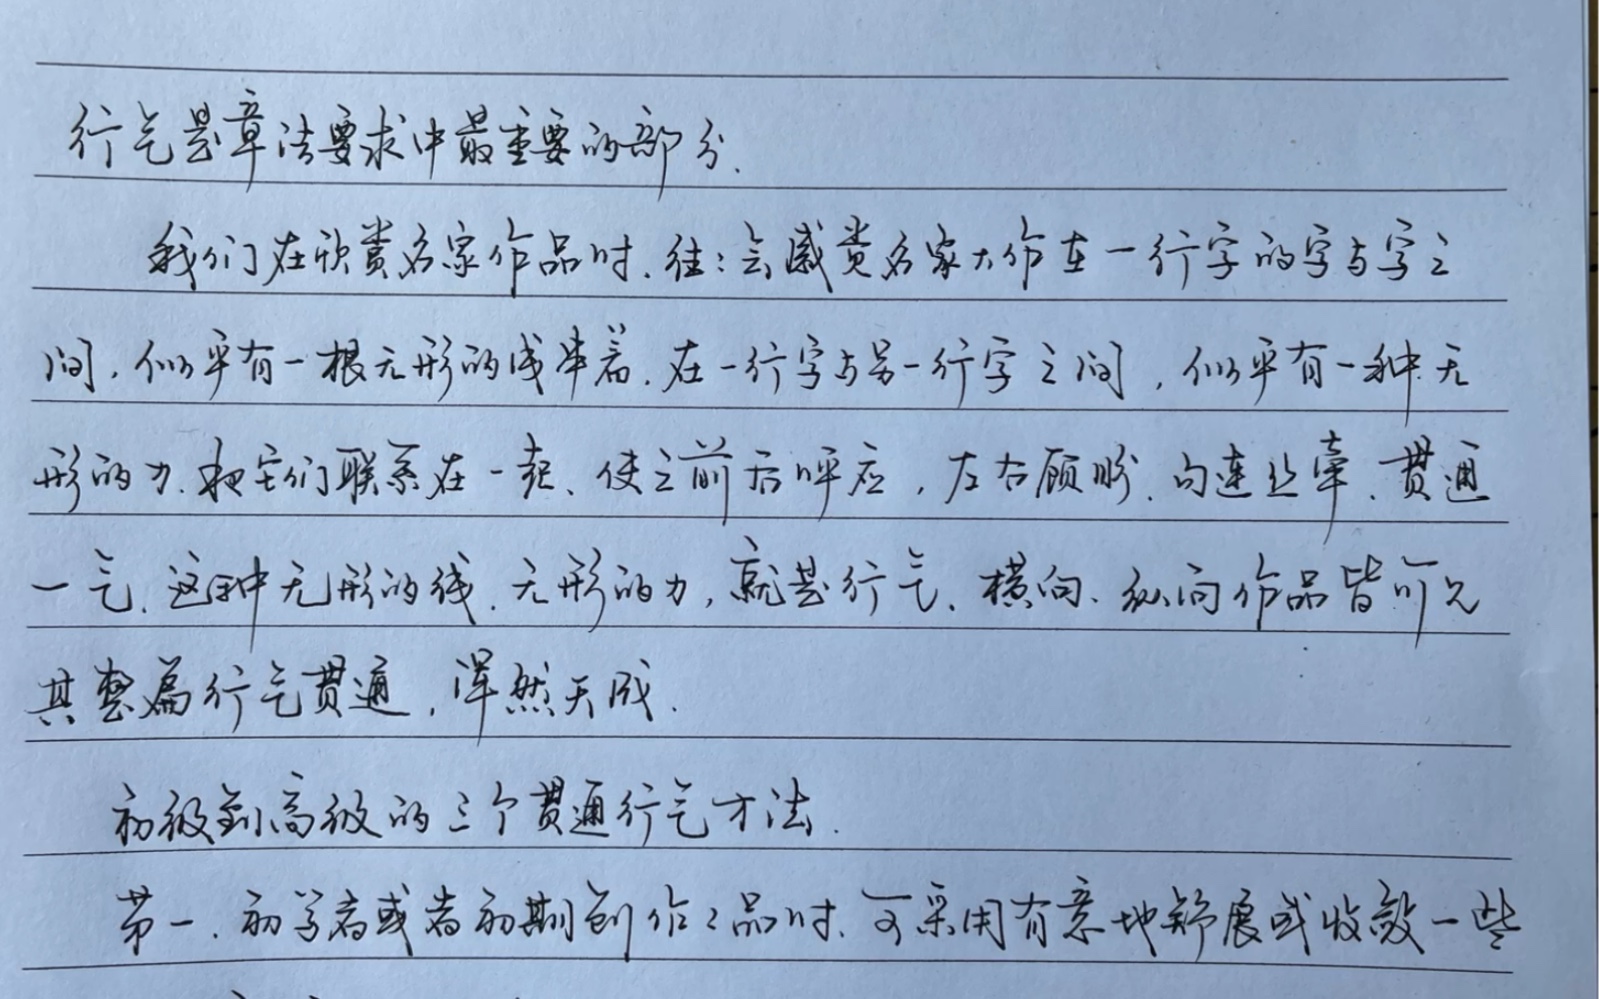 行气是章法要求中最重要的部分.
我们在欣赏名家作品时.往:会感赏名家大作在一行字的字与字之
间.似乎有一根无形的线串着.在一行字与另一行字之间,似乎有一种无
形的力.把它们联系在一起、使之前后呼应,左右顾盼.勾连丝牵.贯通
一气.这种无形的线.无形的力,就是行气.横向、纵向作品皆可见
其整篇行气贯通,浑然天成.
初级到高级的三个贯通行气方法.
第一.初学者或者初期创作作品时.可采用有意地舒展或收敛一些